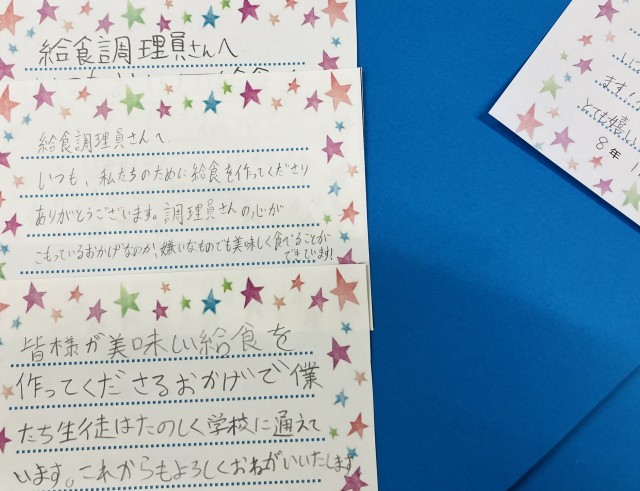 給食調理員さんへ
給食調理員さんへ
いつも、私たちのために給食を作ってくださり
ありがとうございます。調理員さんの心が
こもっているおかげなのか、嫌いなものでも美味しく食べることが
できています!
皆様が美味しい給食を
作ってくださるおかげで僕
たち生徒はたのしく学校に通えて
います。これからもよろしくおねがいいたします
ます!
とても嬉し
8年